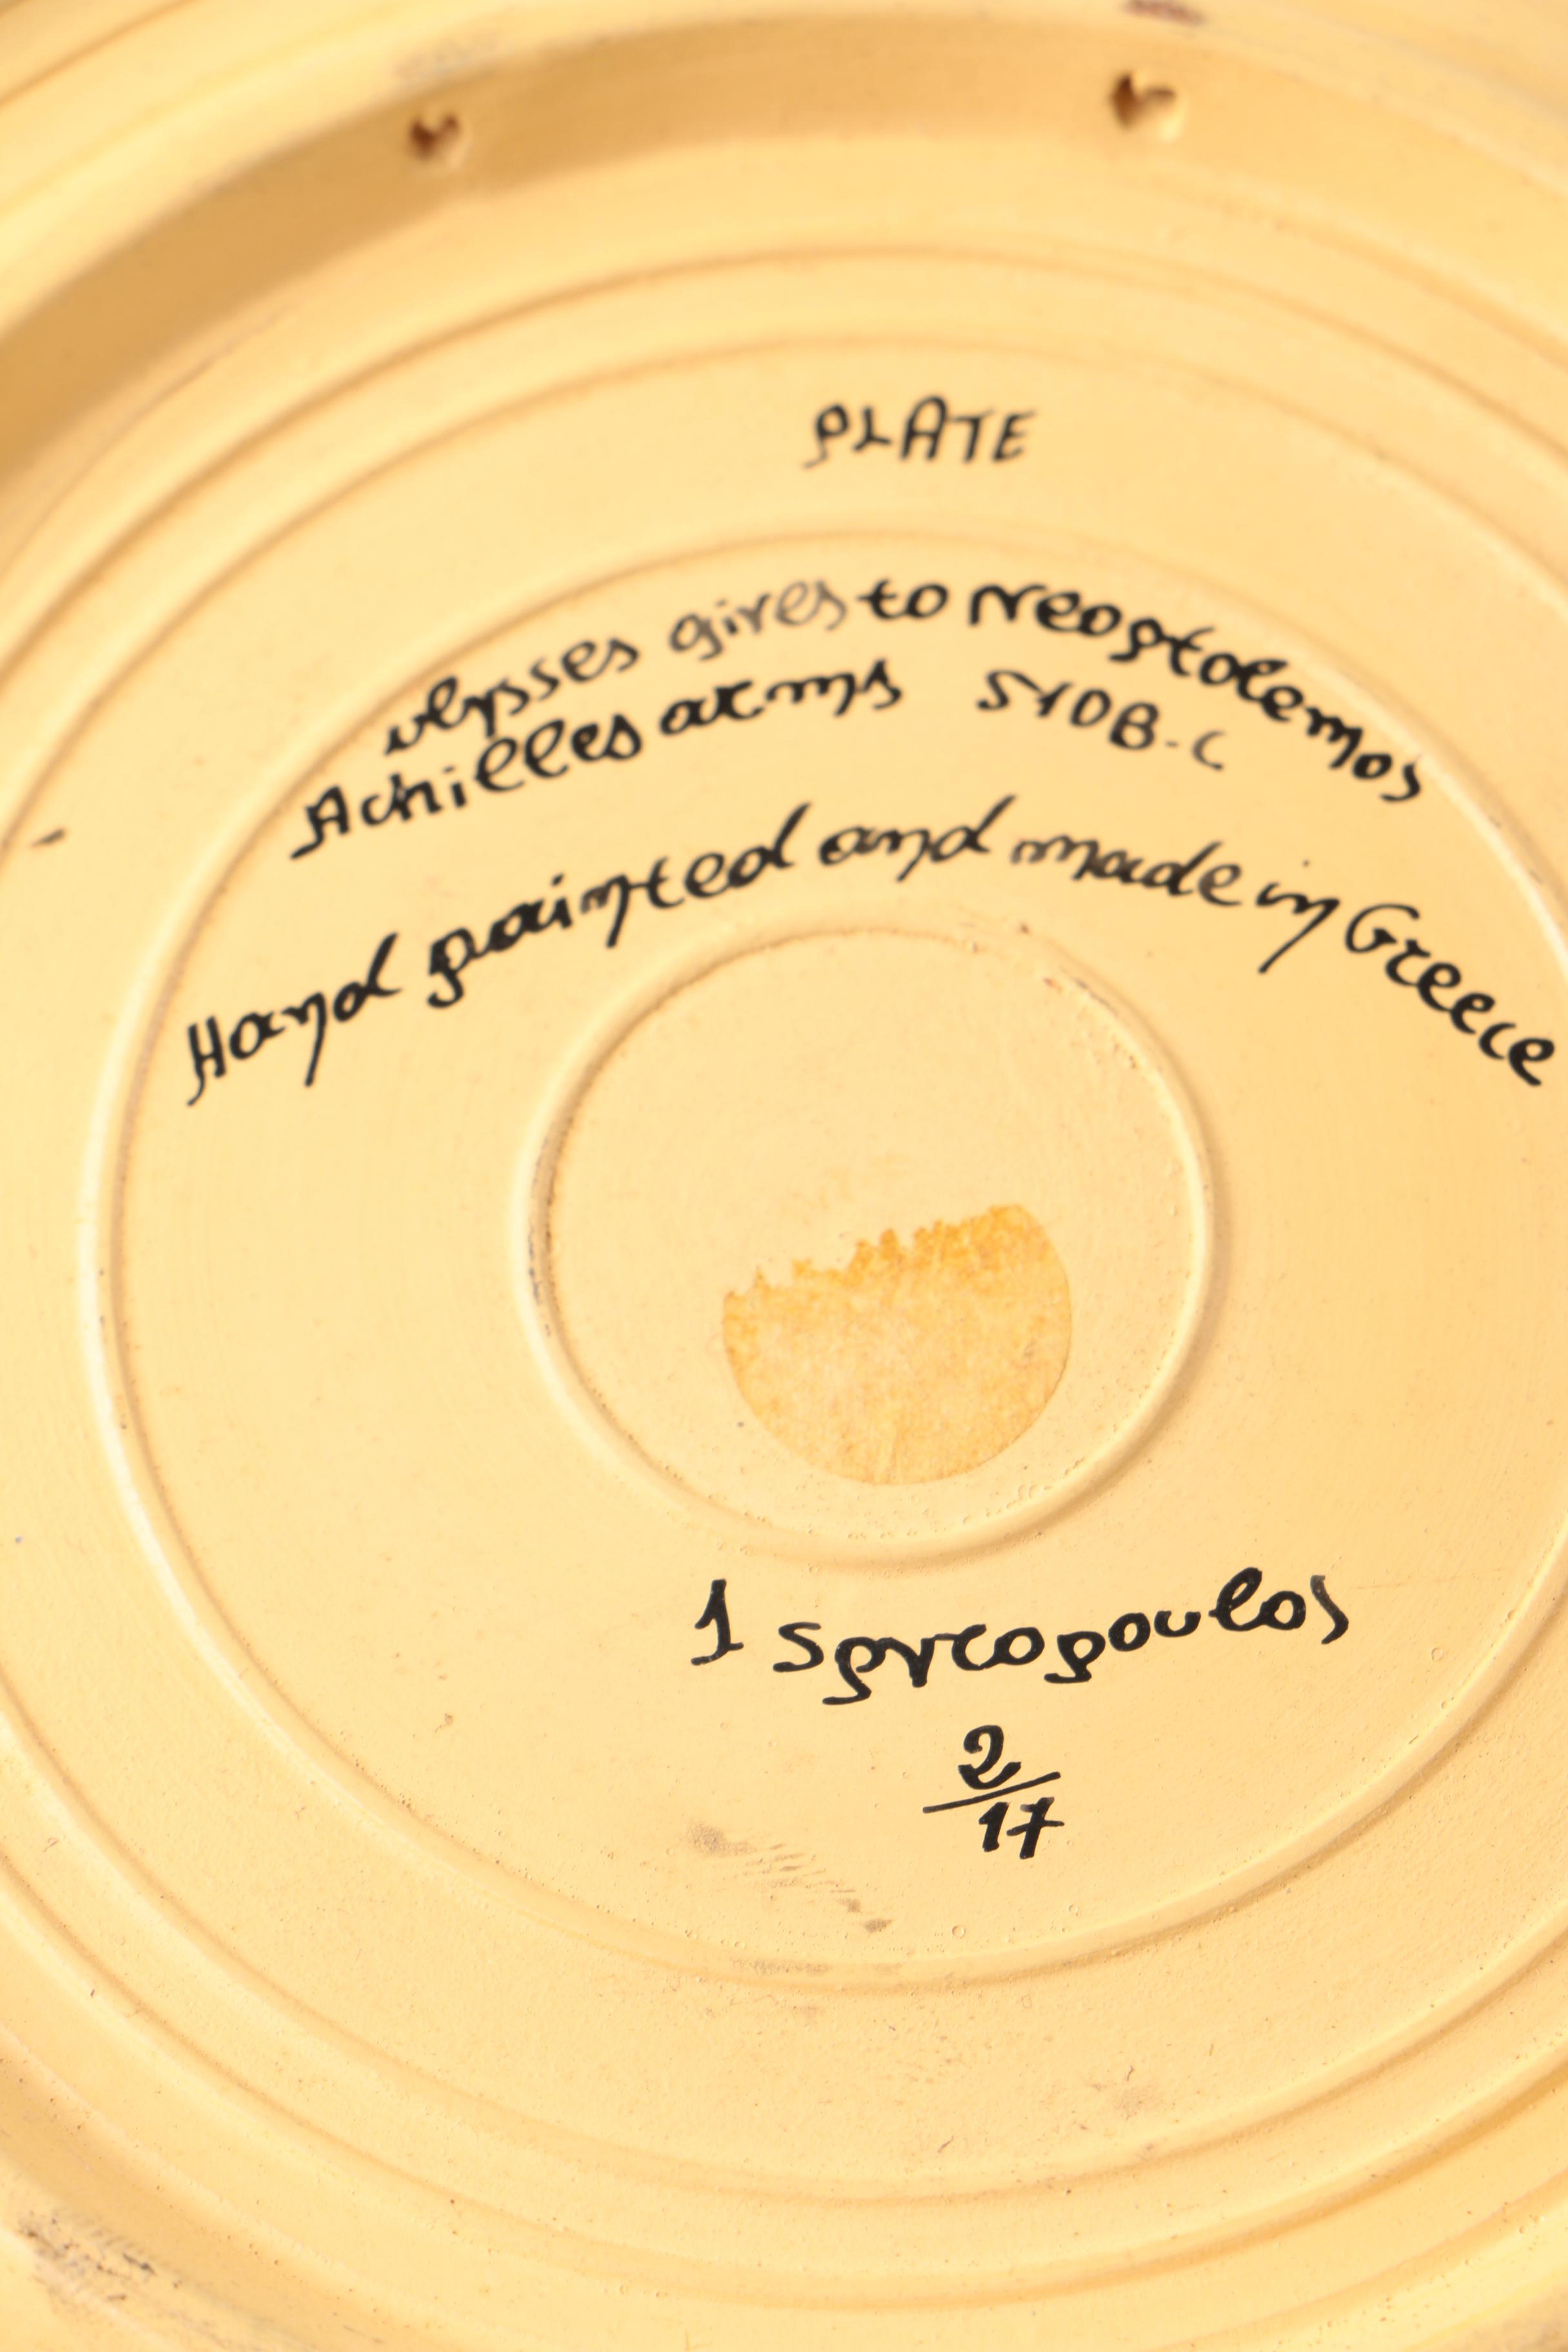 PLATE
ulysses gives to Neoptolemos
Achilles arms 510 B.C
Hand painted and made in Greece
1 spyropoulos
2/17